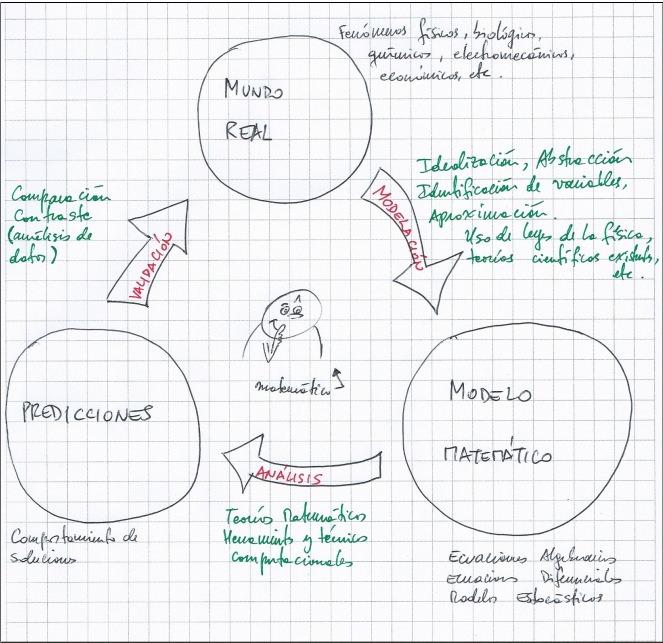 Fenómenos físicos, biológicos,
químicos, electromecánicos,
económicos, etc.
MUNDO
REAL
Idealización, Abstracción
Identificación de variables,
Aproximación.
Uso de leyes de la física,
teorías científicas existentes,
etc.
MODELACIÓN
Comparación
Contraste
(análisis de
datos)
VALIDACIÓN
matemático
PREDICCIONES
MODELO
MATEMÁTICO
ANÁLISIS
Teorías Matemáticas
Herramientas y técnicas
Computacionales
Comportamiento de
soluciones
Ecuaciones Algebraicas
Ecuaciones Diferenciales
Modelos Estocásticos